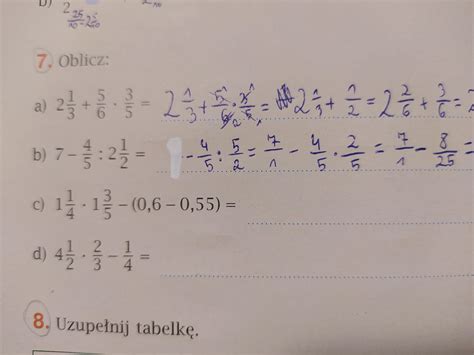 b) 2
25/10 - 2
7. Oblicz:
a) 2 1/3 + 5/6 · 3/5 = 2 1/3 + 5/6 · 3/5 = 2 1/3 + 1/2 = 2 2/6 + 3/6 = 2
b) 7 − 4/5 : 2 1/2 = - 4/5 : 5/2 = 7/1 - 4/5 · 2/5 = 7/1 - 8/25 =
c) 1 1/4 · 1 3/5 − (0,6 − 0,55) =
d) 4 1/2 · 2/3 − 1/4 =
8. Uzupełnij tabelkę.